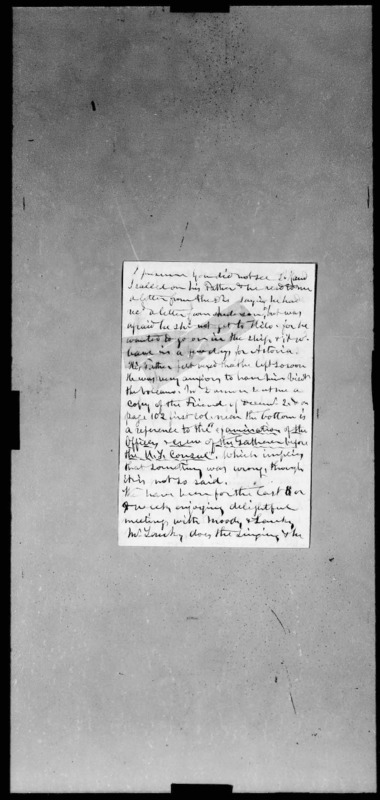 I presume you did not see
I called on his Father & he read to me
a letter from the saying he had
rec'd a letter from but was
afraid he sh'd not get to Hilo. for he
wanted to go on in the ship, & it w'd
have in a few days for Astoria.
His Father felt that he left so soon
he was very anxious to have him visit
the volcano. Mr sent me a
copy of the Friend of Decem'r 2d &
page 102 first col. near the bottom is
a reference to the examination of the
Officers & crew of the before
the U.S. Consul. which implies
that something was wrong, though
it is not so said.
We have been for the last 8 or
9 weeks enjoying delightful
meetings with Moody & Sankey
Mr. Sankey does the singing & he